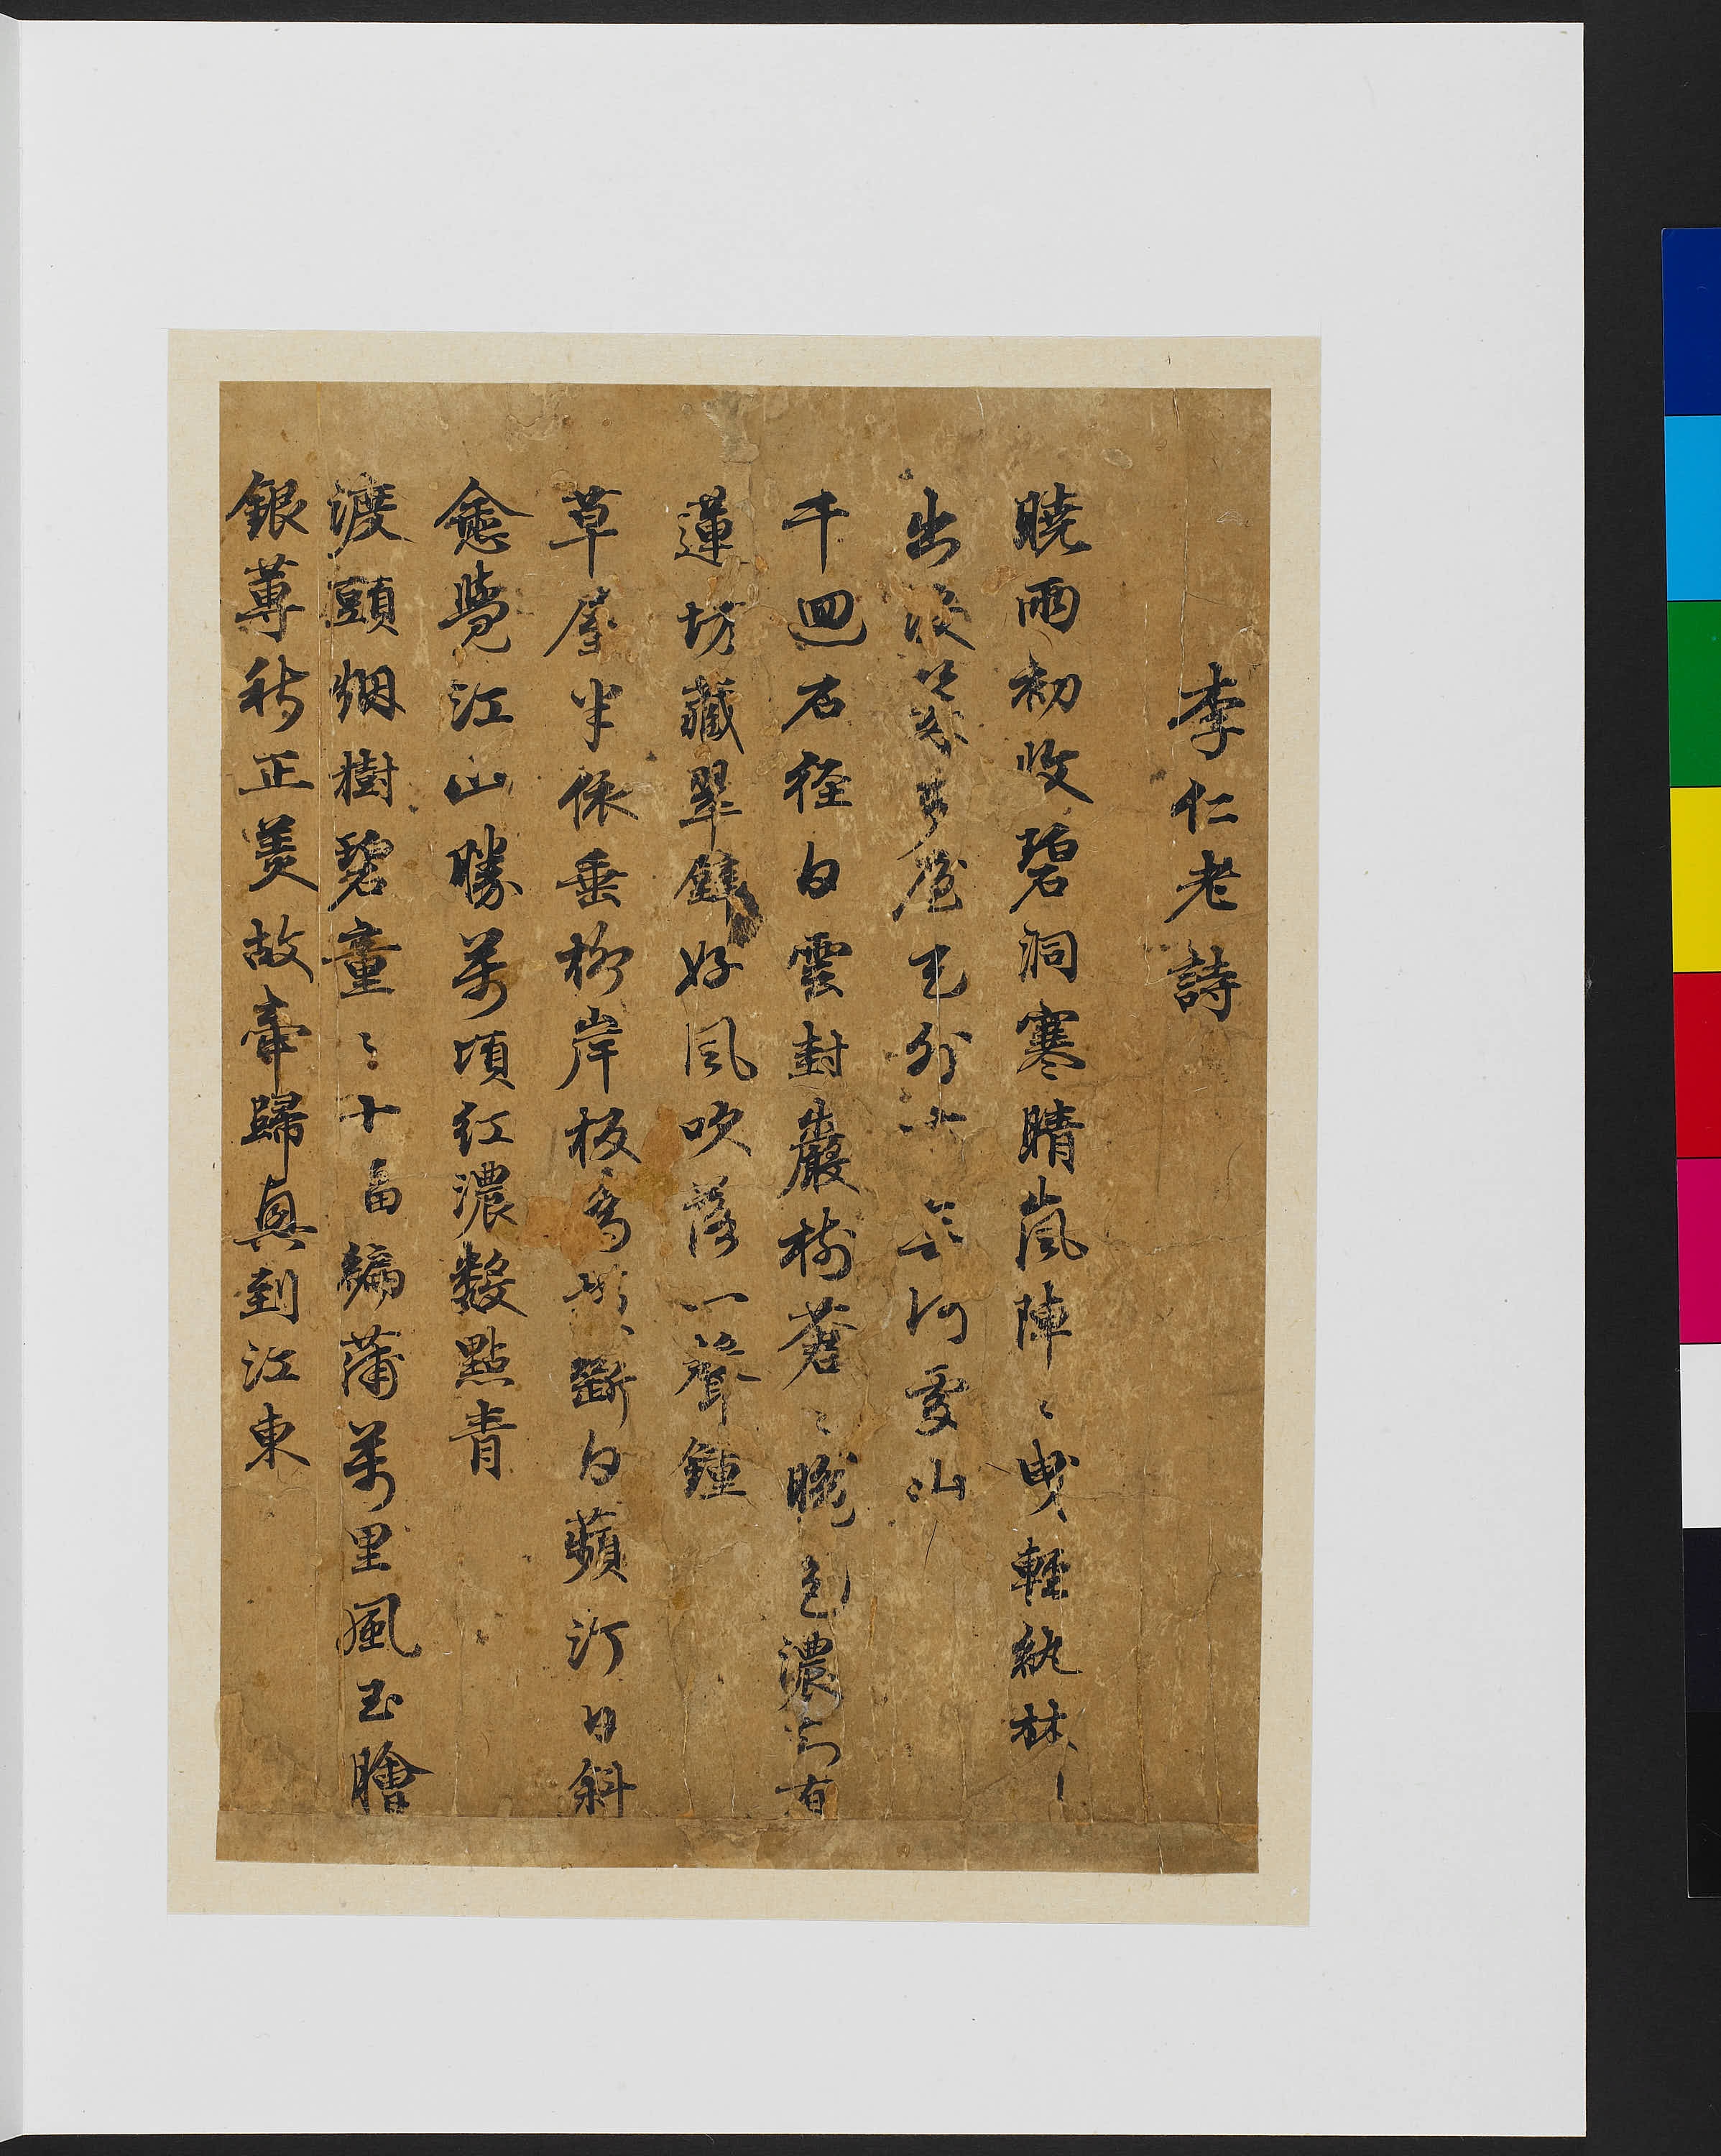 李仁老詩
曉雨初收碧洞寒晴嵐陣〻曳輕紈林
出沒幾多屋天外無何處山
千迴石徑白雲封巖樹蒼〻晩色濃知有
蓮坊藏翠壁好風吹落一聲鍾
草屋半依垂柳岸板橋橫斷白蘋汀日斜
愈覺江山勝萬頃紅濃數點青
渡頭烟樹碧童〻十畐編蒲萬里風玉膾
銀蓴秋正美故牽歸興到江東